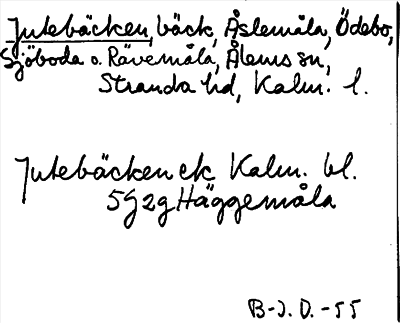 Jutebäcken, bäck, Åslemåla, Ödebo,
Sjöboda o. Rävemåla, Ålems sn,
Stranda hd, Kalm. l.
Jutebäcken ek Kalm. bl.
5G2g Häggemåla
B-J.D.-55